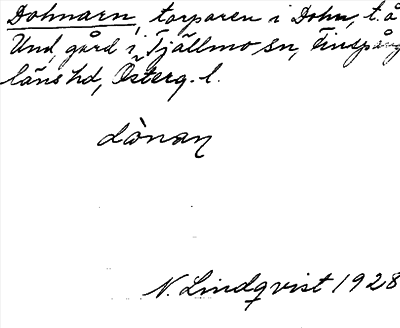 Dohnarn, torparen i Dohn, t. å
Und, gård i Tjällmo sn, Finspång
läns hd, Österg. l.
dònaɳ
N. Lindqvist 1928